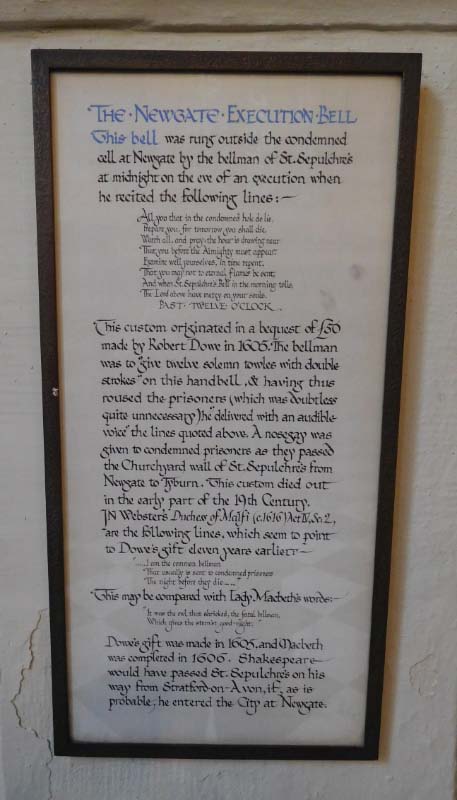 THE · NEWGATE · EXECUTION · BELL
This bell was rung outside the condemned
cell at Newgate by the bellman of St. Sepulchre's
at midnight on the eve of an execution when
he recited the following lines:—
All you that in the condemned hole do lie,
Prepare you, for tomorrow you shall die,
Watch all, and pray: the hour is drawing near
That you before the Almighty must appear:
Examine well yourselves, in time repent,
That you may not to eternal flames be sent,
And when St. Sepulchre's Bell in the morning tolls,
The Lord above have mercy on your souls.
PAST · TWELVE · O'CLOCK.
This custom originated in a bequest of £50
made by Robert Dowe in 1605. The bellman
was to "give twelve solemn towles with double
strokes" on this handbell, & having thus
roused the prisoners (which was doubtless
quite unnecessary) he "delivered with an audible
voice" the lines quoted above. A nosegay was
given to condemned prisoners as they passed
the Churchyard wall of St. Sepulchre's from
Newgate to Tyburn. This custom died out
in the early part of the 19th Century.
IN Webster's Duchess of Malfi (c.1616) Act IV, Sc. 2,
are the following lines, which seem to point
to Dowe's gift eleven years earlier:—
"..... I am the common bellman
That usually is sent to condemned prisoners
The night before they die ....."
This may be compared with Lady Macbeth's words:—
"It was the owl that shrieked, the fatal bellman,
Which gives the stern'st good-night."
Dowe's gift was made in 1605, and Macbeth
was completed in 1606. Shakespeare
would have passed St. Sepulchre's on his
way from Stratford-on-Avon, if, as is
probable, he entered the City at Newgate.